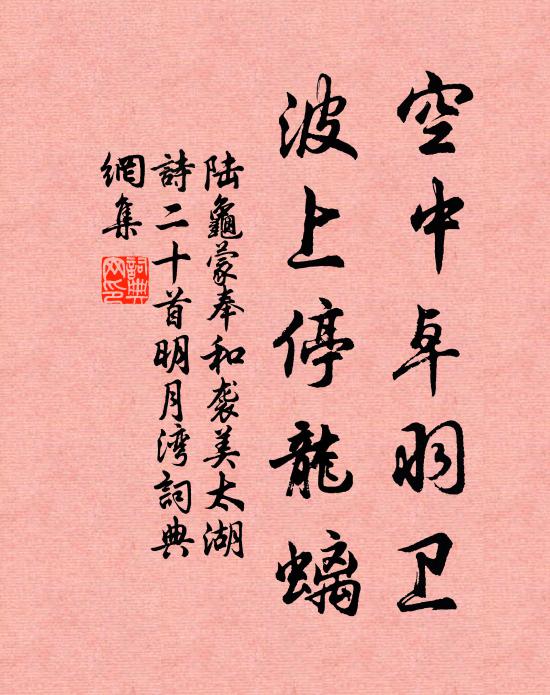 空中卓羽卫
波上停龍螭
陆龜蒙奉和袭美太湖
詩二十首明月湾詞典
網集
詞典网印